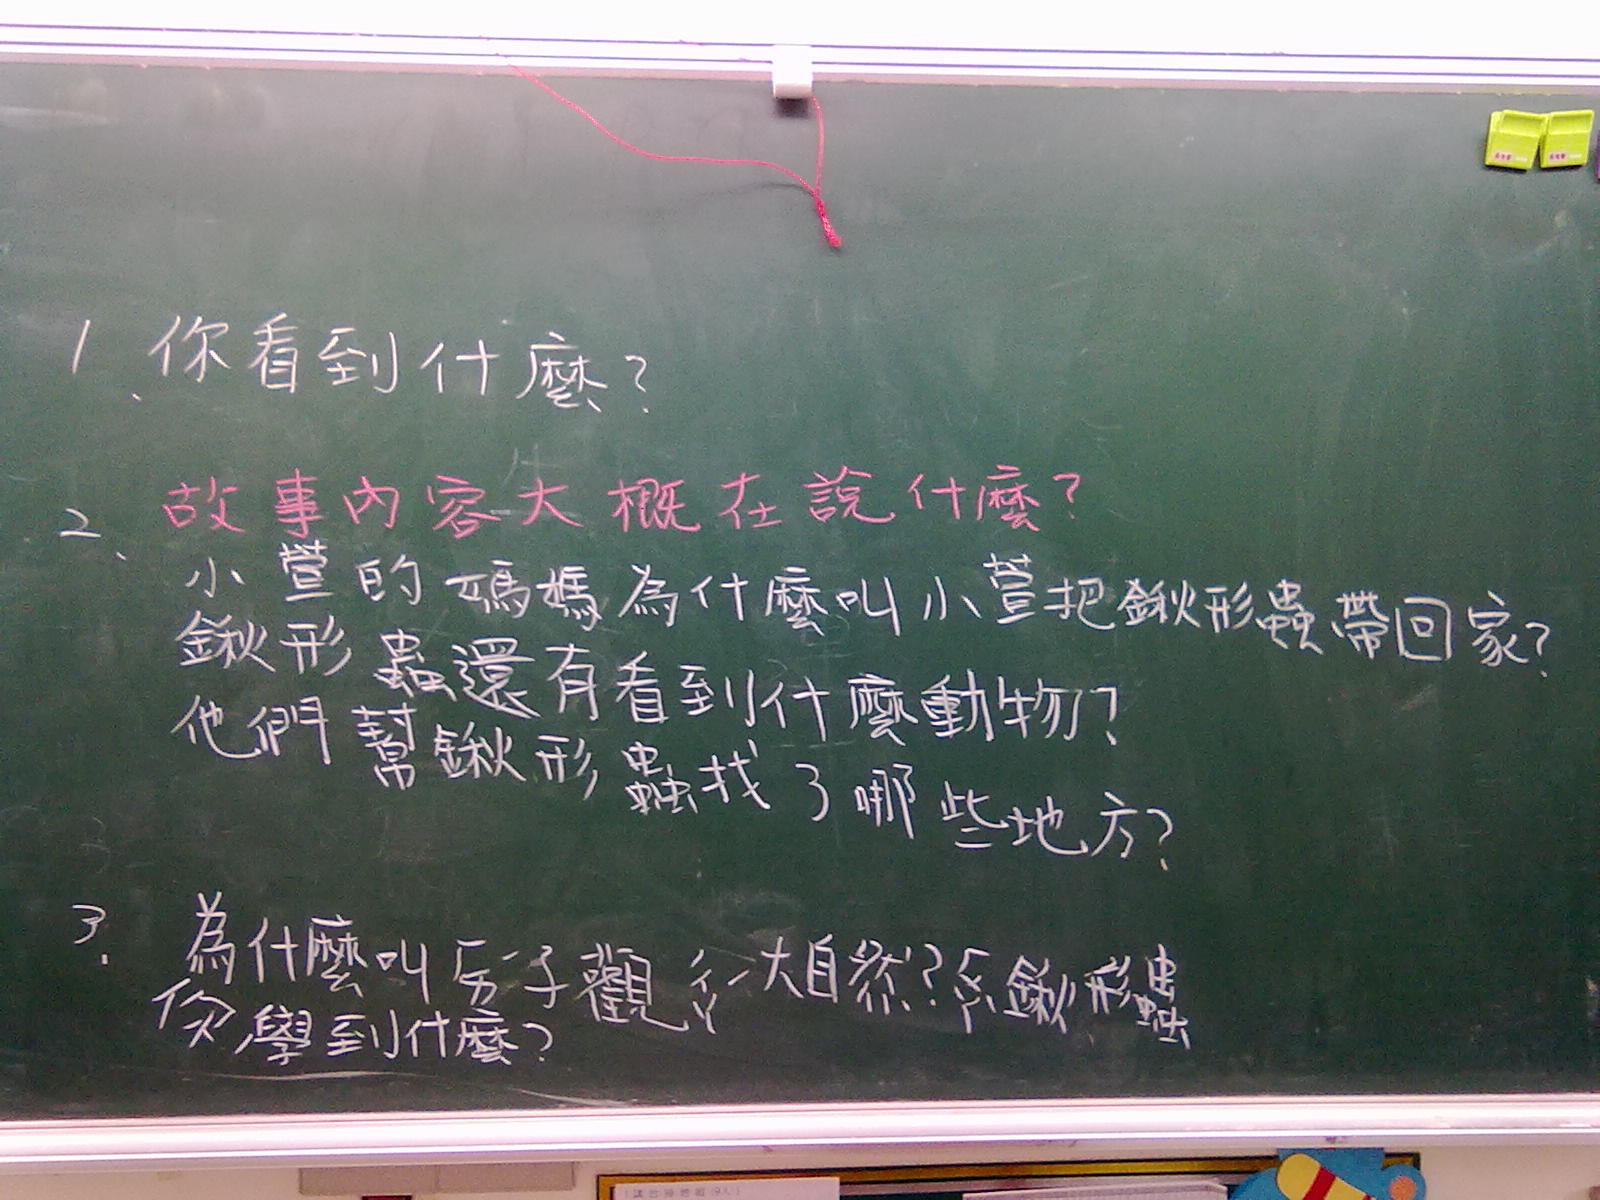 1、你看到什麼?
2、故事內容大概在說什麼?
小萱的媽媽為什麼叫小萱把鍬形蟲帶回家?
鍬形蟲還有看到什麼動物?
他們幫鍬形蟲找了哪些地方?
3.為什麼叫房子觀ㄔㄚˊ大自然?ㄍㄣ鍬形蟲
你學到什麼?